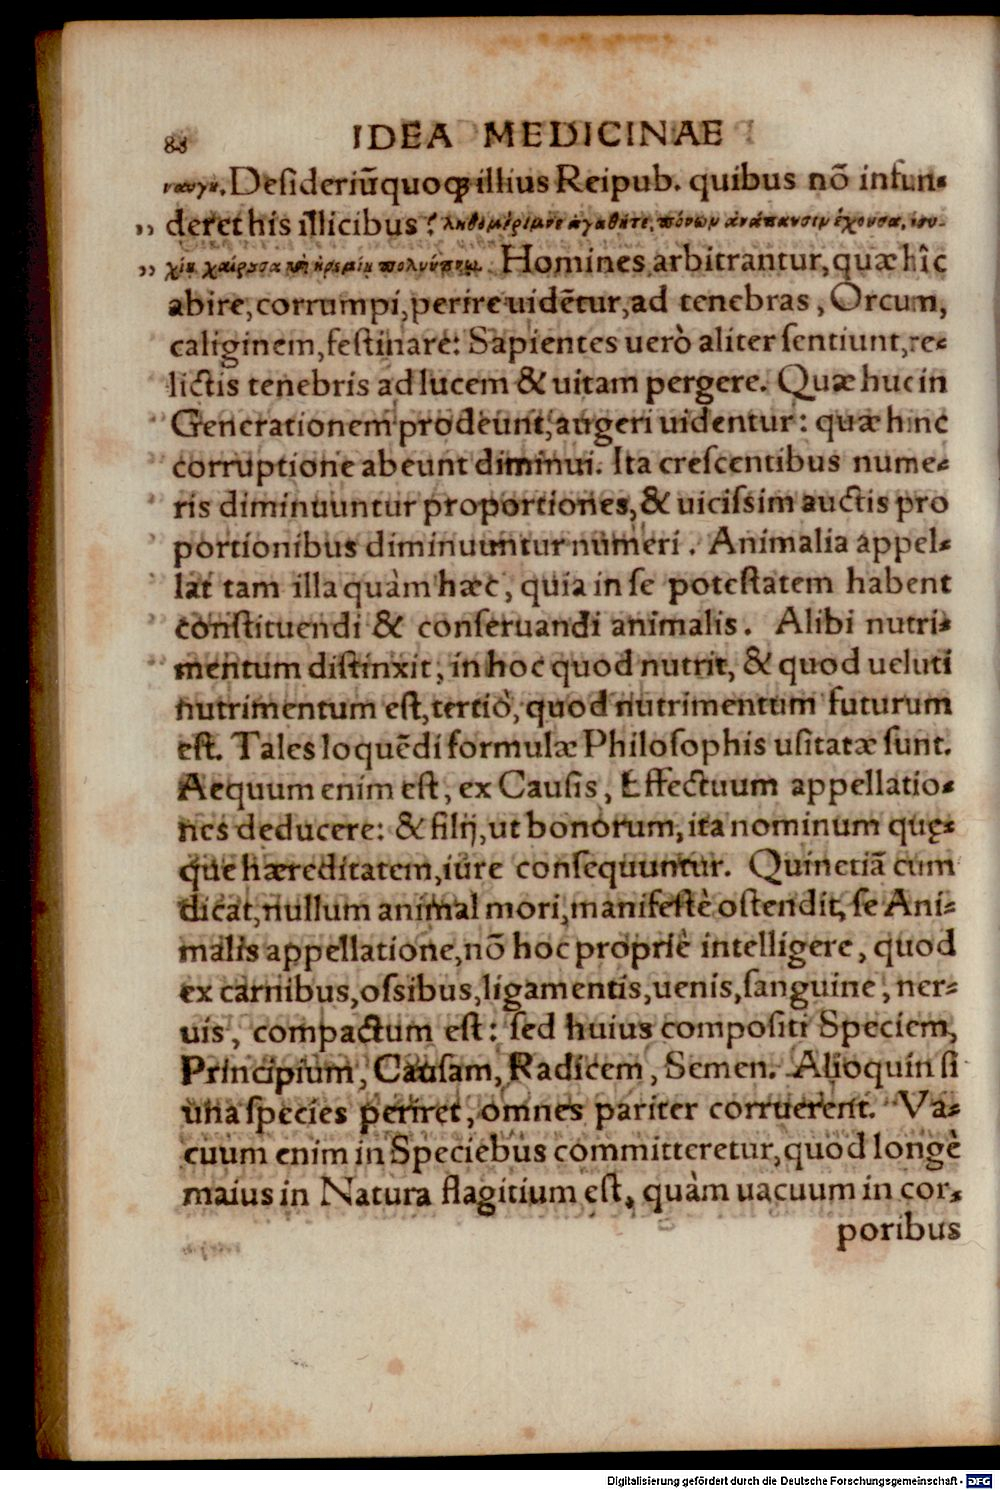 88 IDEA MEDICINAE
Desideriũ quoqꝫ illius Reipub. quibus nõ infun-
„ deret his illicibus? ληθομέριμνε ἀγαθήτε, πόνων ἀνάπαυσιν ἔχουσα,
„ Homines arbitrantur, quæ hîc
abire, corrumpi, perire uidẽtur, ad tenebras, Orcum,
caliginem, festinare: Sapientes uerò aliter sentiunt, re-
lictis tenebris ad lucem & uitam pergere. Quæ huc in
Generationem prodeunt, augeri uidentur: quæ hinc
corruptione abeunt diminui. Ita crescentibus nume-
ris diminuuntur proportiones, & uicissim auctis pro
portionibus diminuuntur numeri. Animalia appel-
lat tam illa quàm hæc, quia in se potestatem habent
constituendi & conseruandi animalis. Alibi nutri-
mentum distinxit, in hoc quod nutrit, & quod ueluti
nutrimentum est, tertiò, quod nutrimentum futurum
est. Tales loquẽdi formulæ Philosophis usitatæ sunt.
Aequum enim est, ex Causis, Effectuum appellatio-
nes deducere: & filij, ut bonorum, ita nominum quę-
que hæreditatem, iure consequuntur. Quinetiã cum
dicat, nullum animal mori, manifestè ostendit, se Ani-
malis appellatione, nõ hoc propriè intelligere, quod
ex carnibus, ossibus, ligamentis, uenis, sanguine, ner-
uis, compactum est: sed huius compositi Speciem,
Principium, Causam, Radicem, Semen. Alioquin si
una species periret, omnes pariter corruerent. Va-
cuum enim in Speciebus committeretur, quod longè
maius in Natura flagitium est, quàm uacuum in cor-
poribus
Digitalisierung gefördert durch die Deutsche Forschungsgemeinschaft - DFG